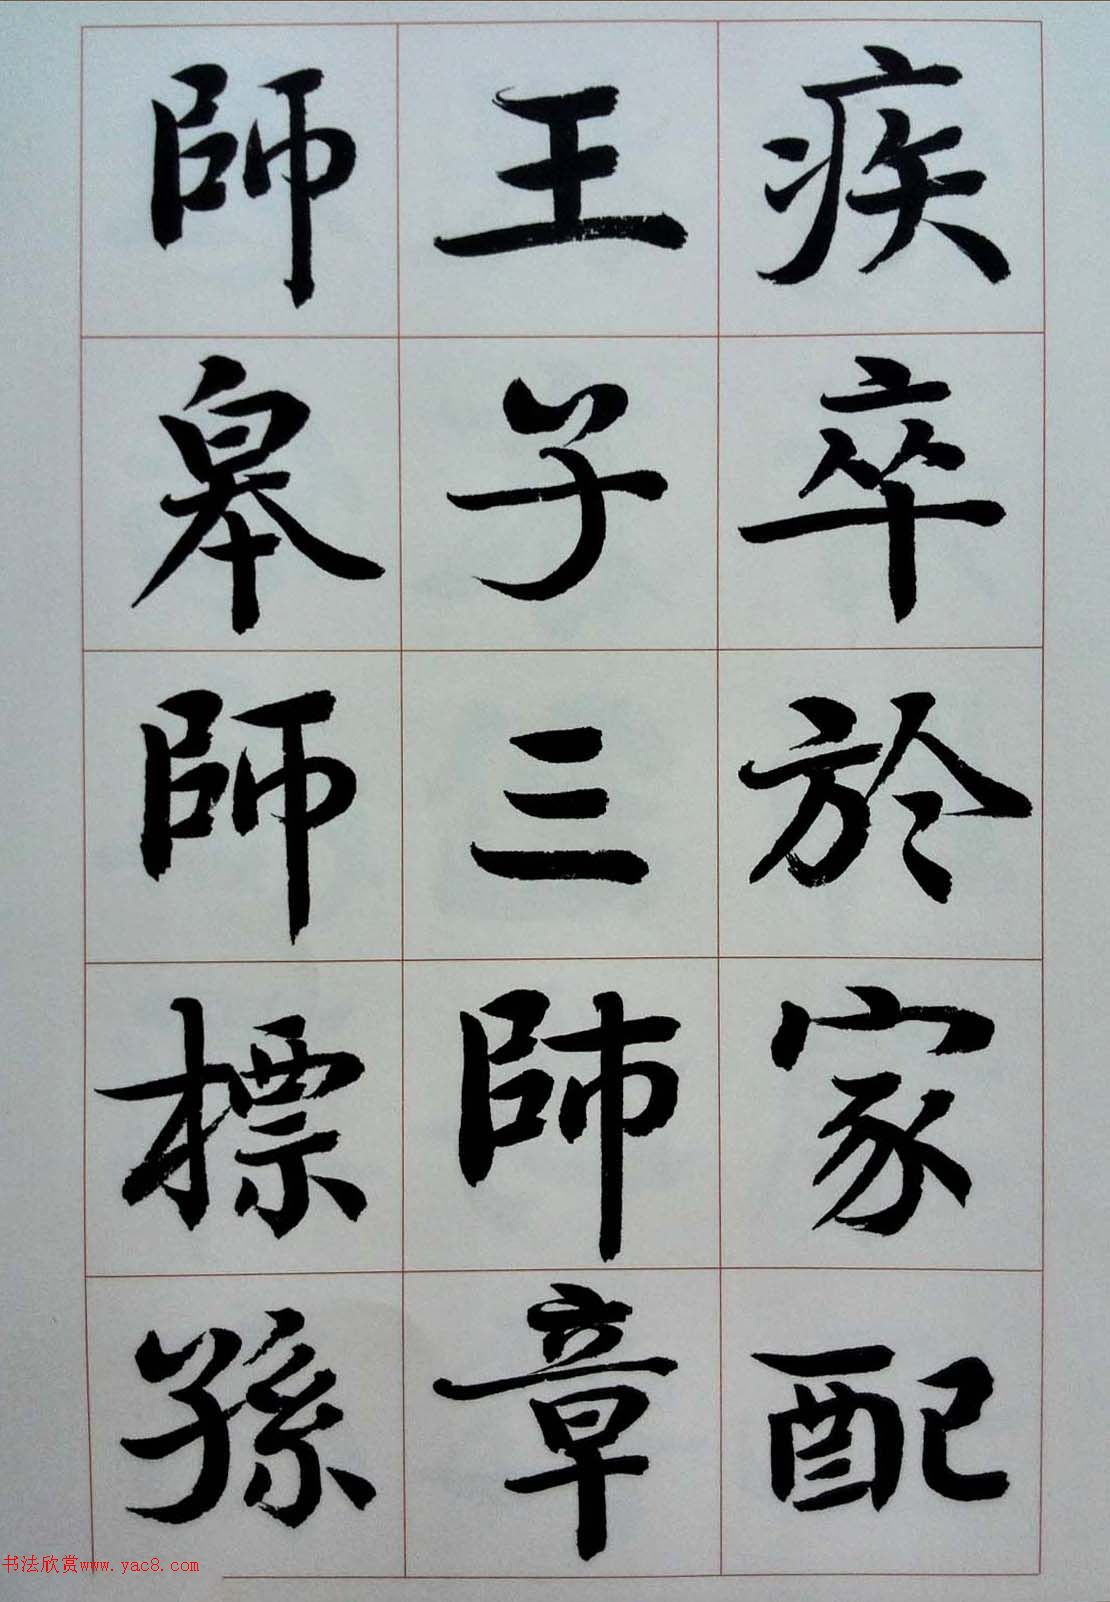 疾卒於家配
王子三師章
師皋師標孫
书法欣赏www.yac8.com